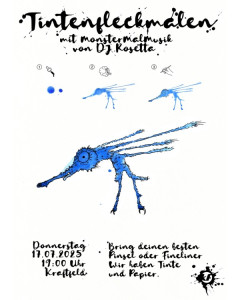 Tintenfleckmalen
mit monstermalmusik
von DJ Rosetta
1
2
3
Donnerstag
17.07.2025
19:00 Uhr
Kraftfeld
Bring deinen besten
Pinsel oder Fineliner
Wir haben Tinte
und Papier.